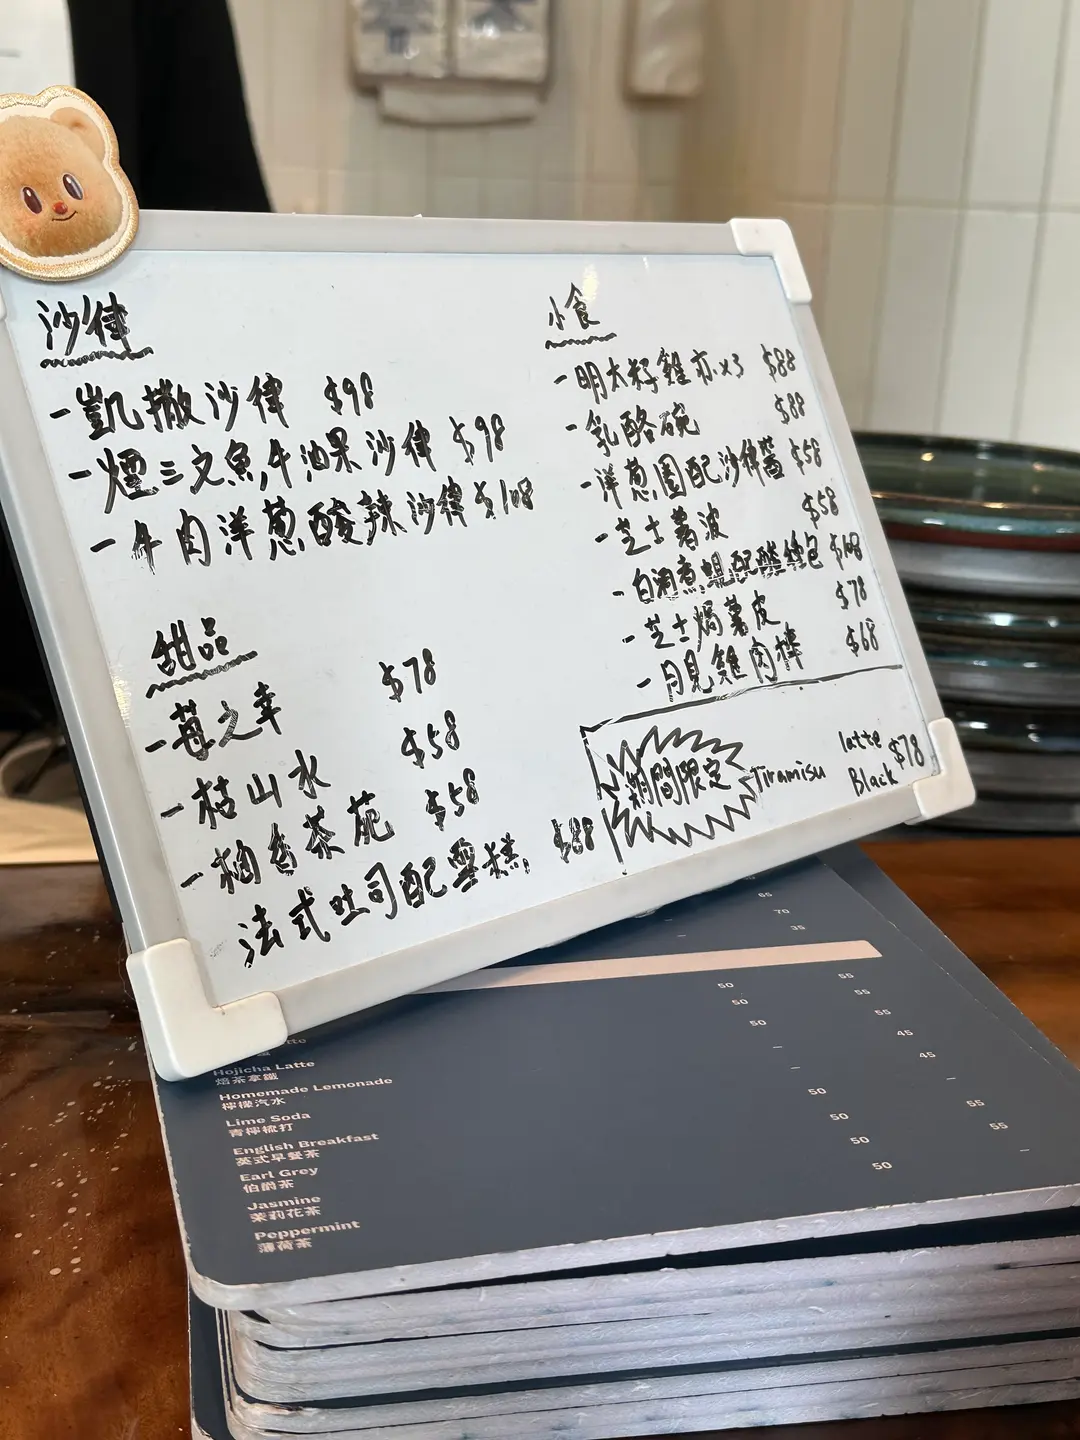 沙律
-凱撒沙律 $98
-煙三文魚牛油果沙律 $98
-牛肉洋葱酸辣沙律 $108
甜品
-莓之幸 $78
-枯山水 $58
-柚香茶苑 $58
法式吐司配雪糕 $88
小食
-明太籽雞亦x3 $88
-乳酪碗 $88
-洋葱圈配沙律醬 $58
-芝士薯波 $58
-白酒煮蜆配酸種包 $108
-芝士焗薯皮 $78
-月見雞肉棒 $68
期間限定
Tiramisu
latte
Black
$78
65
70
35
50 55
50 55
50 55
— 45
— 45
50 —
50 55
50 55
50 —
Hojicha Latte
焙茶拿鐵
Homemade Lemonade
檸檬汽水
Lime Soda
青檸梳打
English Breakfast
英式早餐茶
Earl Grey
伯爵茶
Jasmine
茉莉花茶
Peppermint
薄荷茶